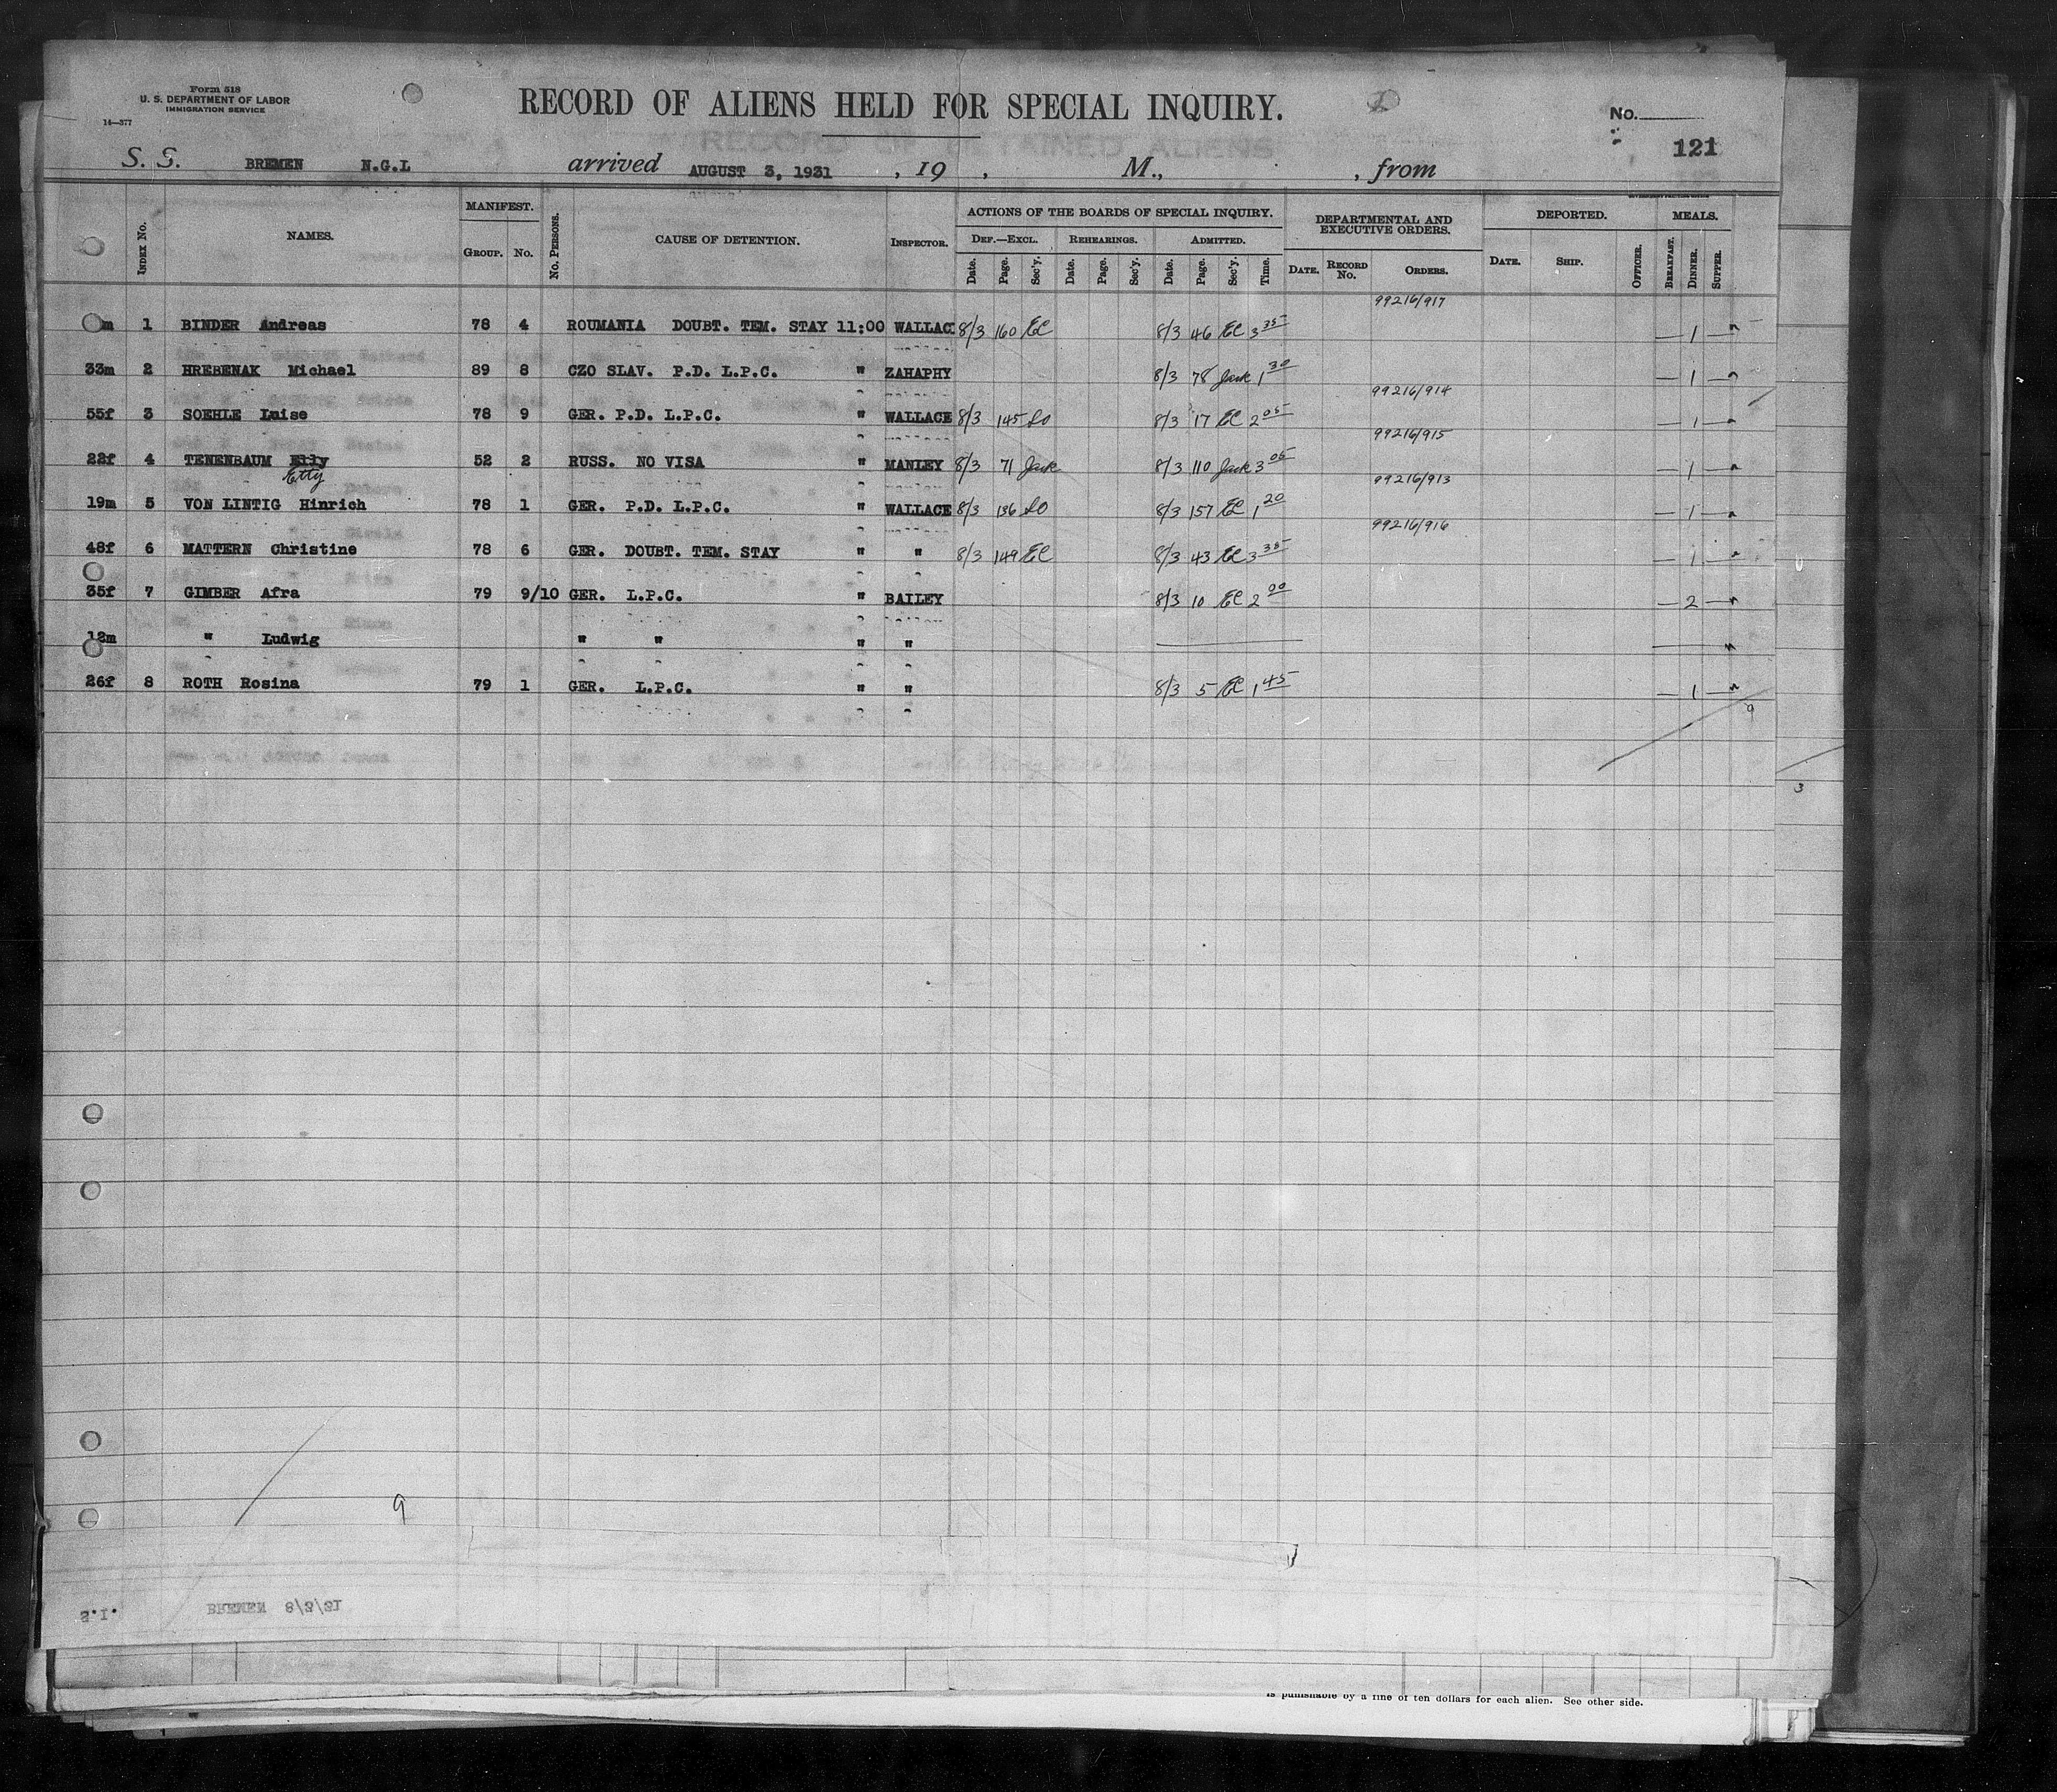 Form 518
U. S. DEPARTMENT OF LABOR
IMMIGRATION SERVICE
14—377
RECORD OF ALIENS HELD FOR SPECIAL INQUIRY.
No.
121
S. S. BREMEN N.G.L arrived AUGUST 3, 1931 , 19 , M., , from
INDEX No. NAMES. MANIFEST. GROUP. No. No. PERSONS. CAUSE OF DETENTION. INSPECTOR. ACTIONS OF THE BOARDS OF SPECIAL INQUIRY. DEF.—EXCL. Date. Page. Sec'y. REHEARINGS. Date. Page. Sec'y. ADMITTED. Date. Page. Sec'y. Time. DEPARTMENTAL AND EXECUTIVE ORDERS. DATE. RECORD No. ORDERS. DEPORTED. DATE. SHIP. OFFICER. MEALS. BREAKFAST. DINNER. SUPPER.
99216/917
m 1 BINDER Andreas 78 4 ROUMANIA DOUBT. TEM. STAY 11:00 WALLAC 8/3 160 EC 8/3 46 EC 3 35 — 1 —
33m 2 HREBENAK Michael 89 8 CZO SLAV. P.D. L.P.C. " ZAHAPHY 8/3 78 Jack 1 30 — 1 —
99216/914
55f 3 SOEHLE Luise 78 9 GER. P.D. L.P.C. " WALLACE 8/3 145 LO 8/3 17 EC 2 05 — 1 —
99216/915
22f 4 TENENBAUM Elly 52 2 RUSS. NO VISA " MANLEY 8/3 71 Jack 8/3 110 Jack 3 05 — 1 —
Etty
99216/913
19m 5 VON LINTIG Hinrich 78 1 GER. P.D. L.P.C. " WALLACE 8/3 136 LO 8/3 157 EC 1 20 — 1 —
99216/916
48f 6 MATTERN Christine 78 6 GER. DOUBT. TEM. STAY " " 8/3 149 EC 8/3 43 EC 3 35 — 1 —
35f 7 GIMBER Afra 79 9/10 GER. L.P.C. " BAILEY 8/3 10 EC 2 00 — 2 —
12m " Ludwig " " " "
26f 8 ROTH Rosina 79 1 GER. L.P.C. " " 8/3 5 EC 1 45 — 1 —
9
3
9
S.I. BREMEN 8/3/31
is punishable by a fine of ten dollars for each alien. See other side.